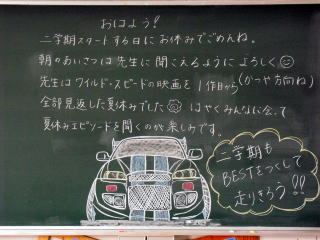 おはよう!
二学期スタートする日にお休みでごめんね。
朝のあいさつは先生に聞こえるようによろしく
先生はワイルド・スピードの映画を1作目から(かつや方向ね)
全部見返した夏休みでした はやくみんなに会って
夏休みエピソードを聞くのが楽しみです。
二学期も
BESTをつくして
走りきろう!!